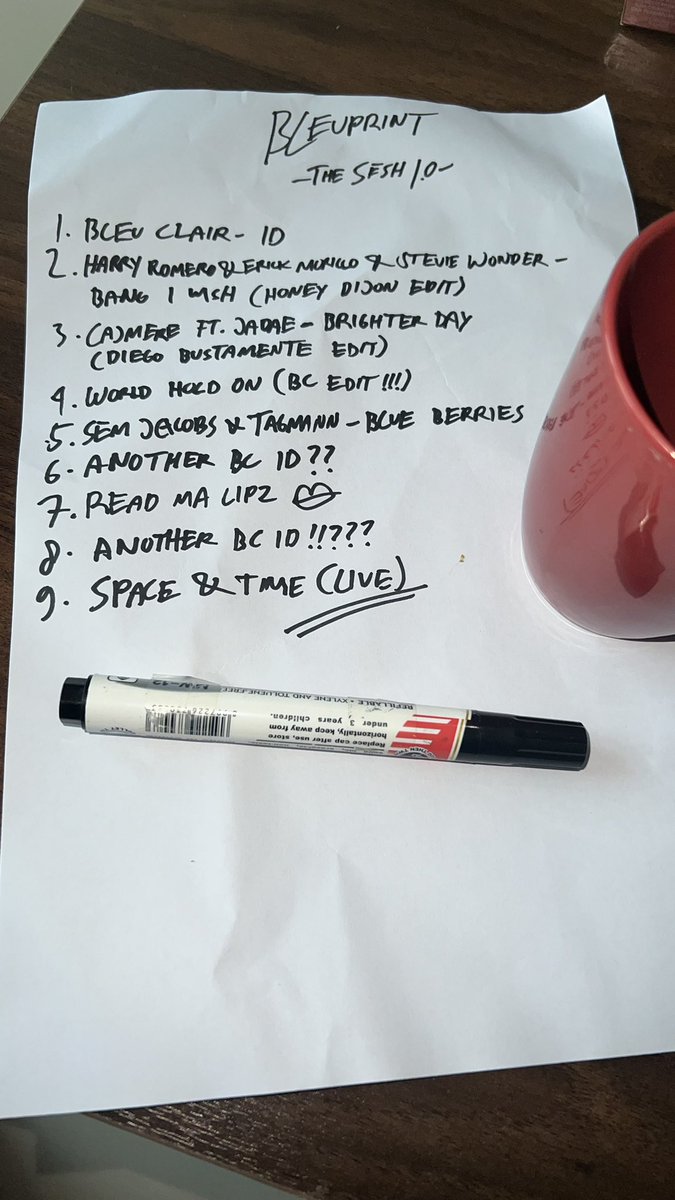 BLEUPRINT
-THE SESH 1.0-
1. BLEU CLAIR - ID
2. HARRY ROMERO & ERICK MORILLO & STEVIE WONDER -
BANG I WISH (HONEY DIJON EDIT)
3. CAJMERE FT. DAJAE - BRIGHTER DAY
(DIEGO BUSTAMENTE EDIT)
4. WORLD HOLD ON (BC EDIT!!!)
5. SEM JACOBS & TAGMANN - BLUE BERRIES
6. ANOTHER BC ID??
7. READ MA LIPZ
8. ANOTHER BC ID!!???
9. SPACE & TIME (LIVE)
REFILLABLE - XYLENE AND TOLUENE FREE
Replace cap after use, store
horizontally, keep away from
under 3 years children.